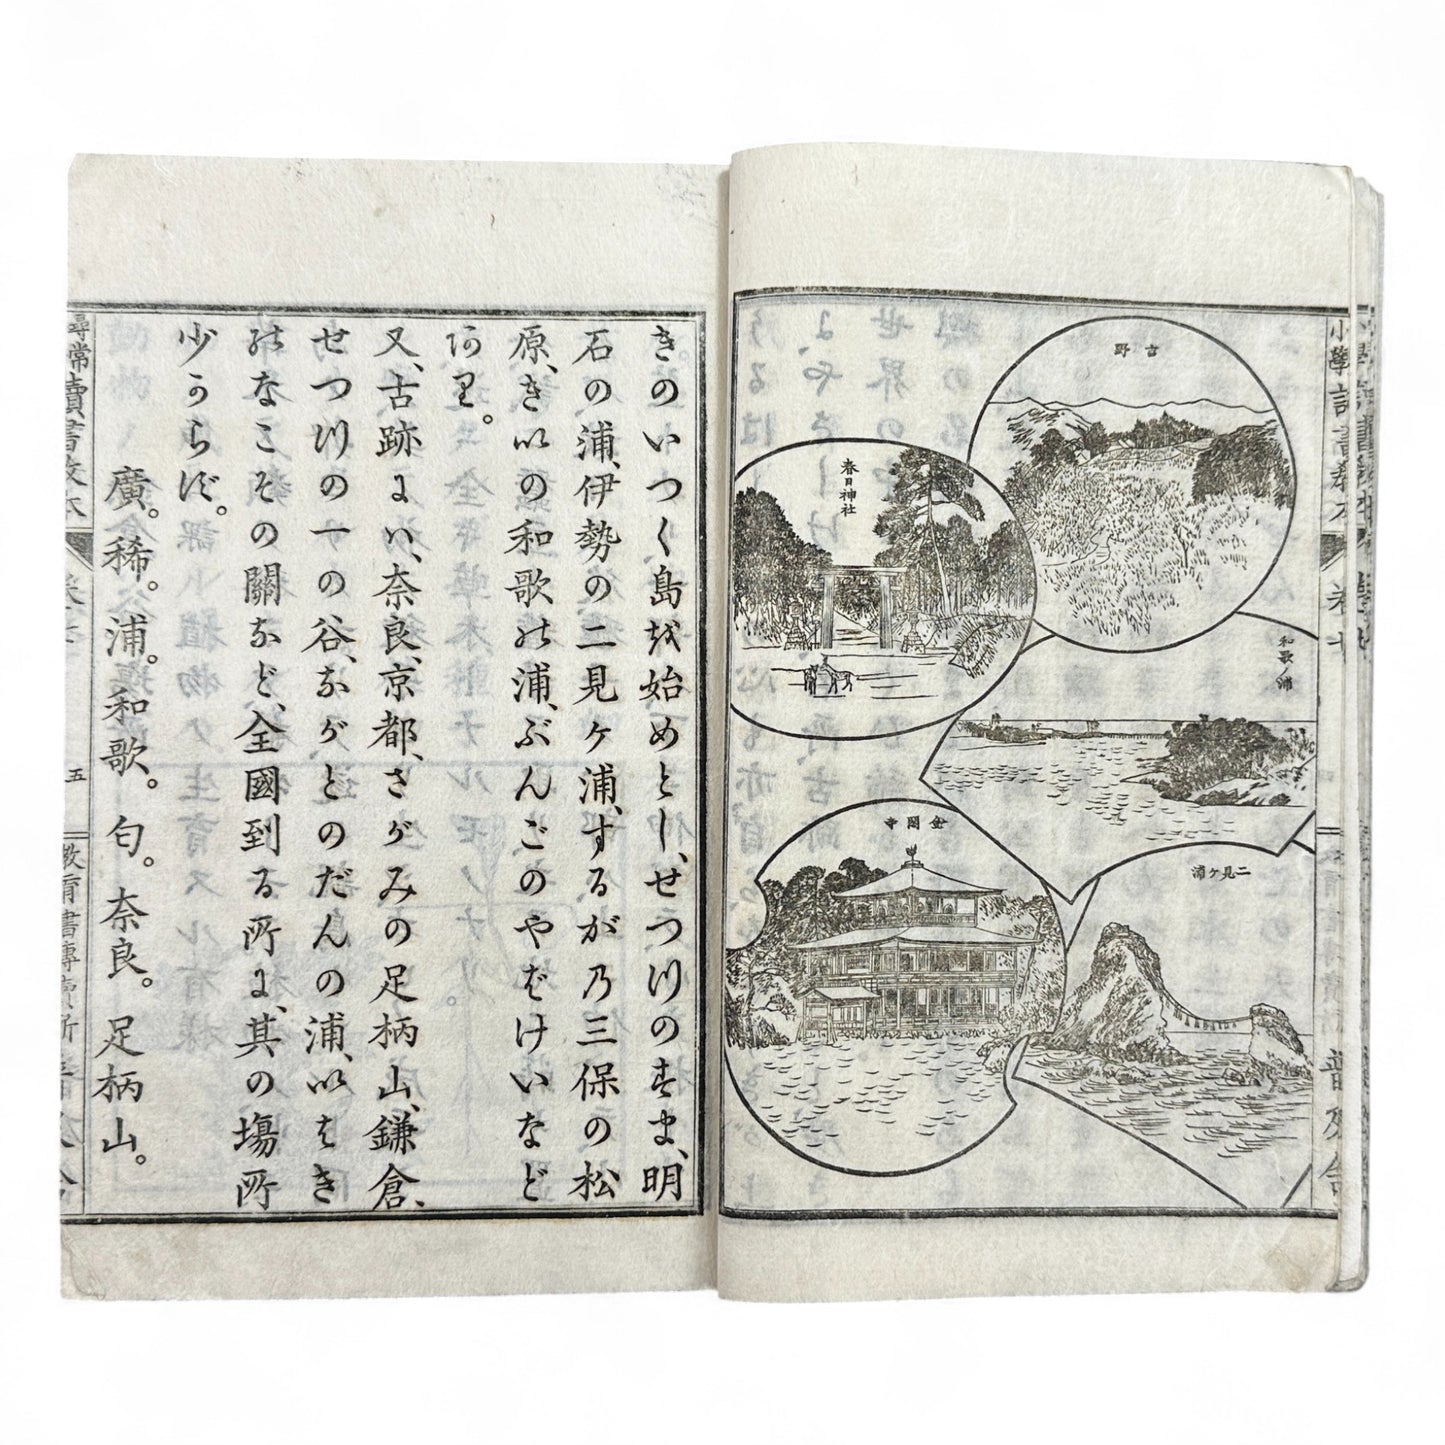 吉野
春日神社
和歌ノ浦
金閣寺
二見ヶ浦
きのいつく島を始めとし、せつつのすま、明
石の浦、伊勢の二見ヶ浦、するが乃三保の松
原、きいの和歌の浦、ぶんごのやばけいなど
あり。
又、古跡には、奈良、京都、さがみの足柄山、鎌倉、
せつつの一の谷、ながとのだんの浦、いはき
のなこその關など、全國到る所に、其の塲所
少からず。
廣。稀。浦。和歌。匂。奈良。足柄山。
尋常讀書教本
五
教育書專賣所